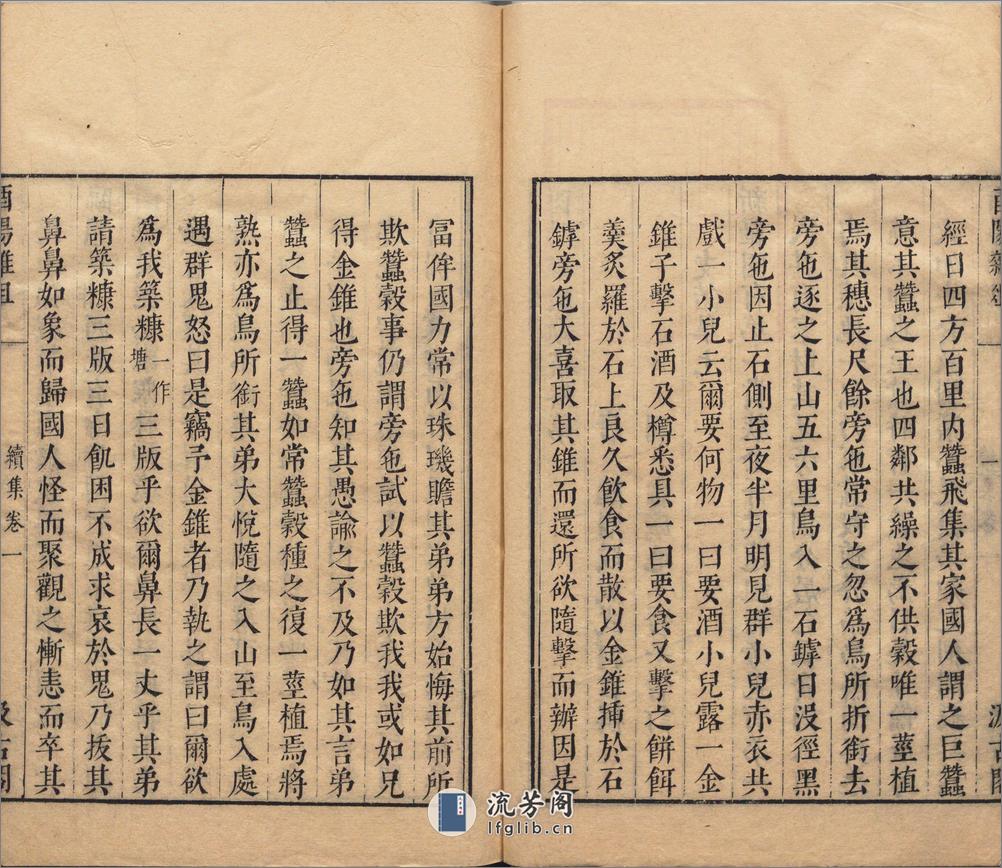 經日四方百里内蠶飛集其家國人謂之巨蠶
意其蠶之王也四鄰共繰之不供穀唯一莖植
焉其穗長尺餘旁㐌常守之忽爲鳥所折銜去
旁㐌逐之上山五六里鳥入一石罅日没徑黑
旁㐌因止石側至夜半月明見群小兒赤衣共
戲一小兒云爾要何物一曰要酒小兒露一金
錐子擊石酒及樽悉具一曰要食又擊之餅餌
羹炙羅於石上良久飲食而散以金錐揷於石
罅旁㐌大喜取其錐而還所欲隨擊而辦因是
冨侔國力常以珠璣贍其弟弟方始悔其前所
欺蠶穀事仍謂旁㐌試以蠶穀欺我我或如兄
得金錐也旁㐌知其愚諭之不及乃如其言弟
蠶之止得一蠶如常蠶穀種之復一莖植焉將
熟亦爲鳥所銜其弟大悅隨之入山至鳥入處
遇群鬼怒曰是竊予金錐者乃執之謂曰爾欲
爲我築糠一作塘三版乎欲爾鼻長一丈乎其弟
請築糠三版三日飢困不成求哀於鬼乃拔其
鼻鼻如象而歸國人怪而聚觀之慚恚而卒其
酉陽雜俎 續集卷一 汲古閣
流芳阁
lfglib.cn